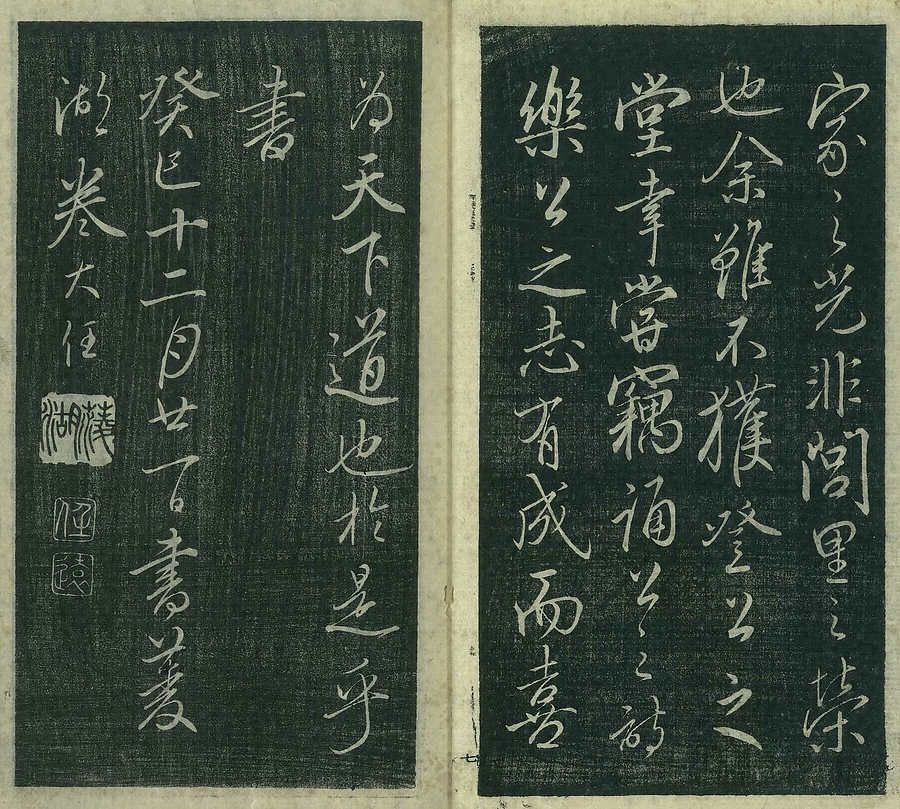 家之光非閭里之榮
也余雖不獲登公之
堂幸嘗竊誦公之詩
樂公之志有成而喜
為天下道也於是乎
書
癸巳十二月廿一日書菱
湖卷大任
菱湖
任
遠
七